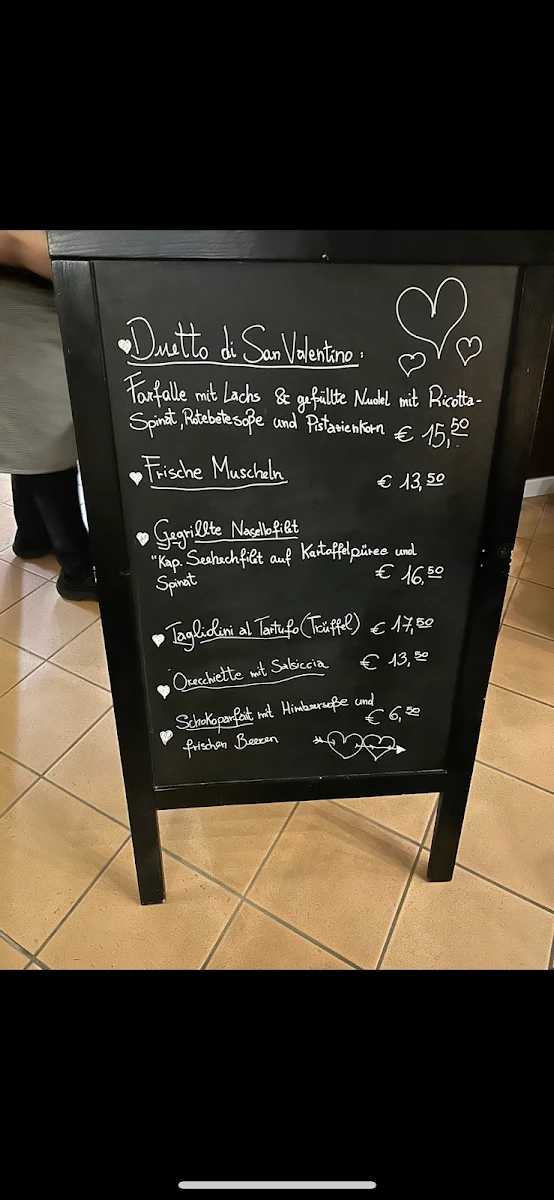 Duetto di San Valentino:
Farfalle mit Lachs & gefüllte Nudel mit Ricotta-
Spinat, Rotebetesoße und Pistazienkorn € 15,50
Frische Muscheln € 13,50
Gegrillte Nasellofilet
"Kap. Seehechfilet auf Kartoffelpüree und
Spinat € 16,50
Tagliolini al Tartufo (Trüffel) € 17,50
Orecchiette mit Salsiccia € 13,50
Schokoparfait mit Himbeersoße und
frischen Beeren € 6,50